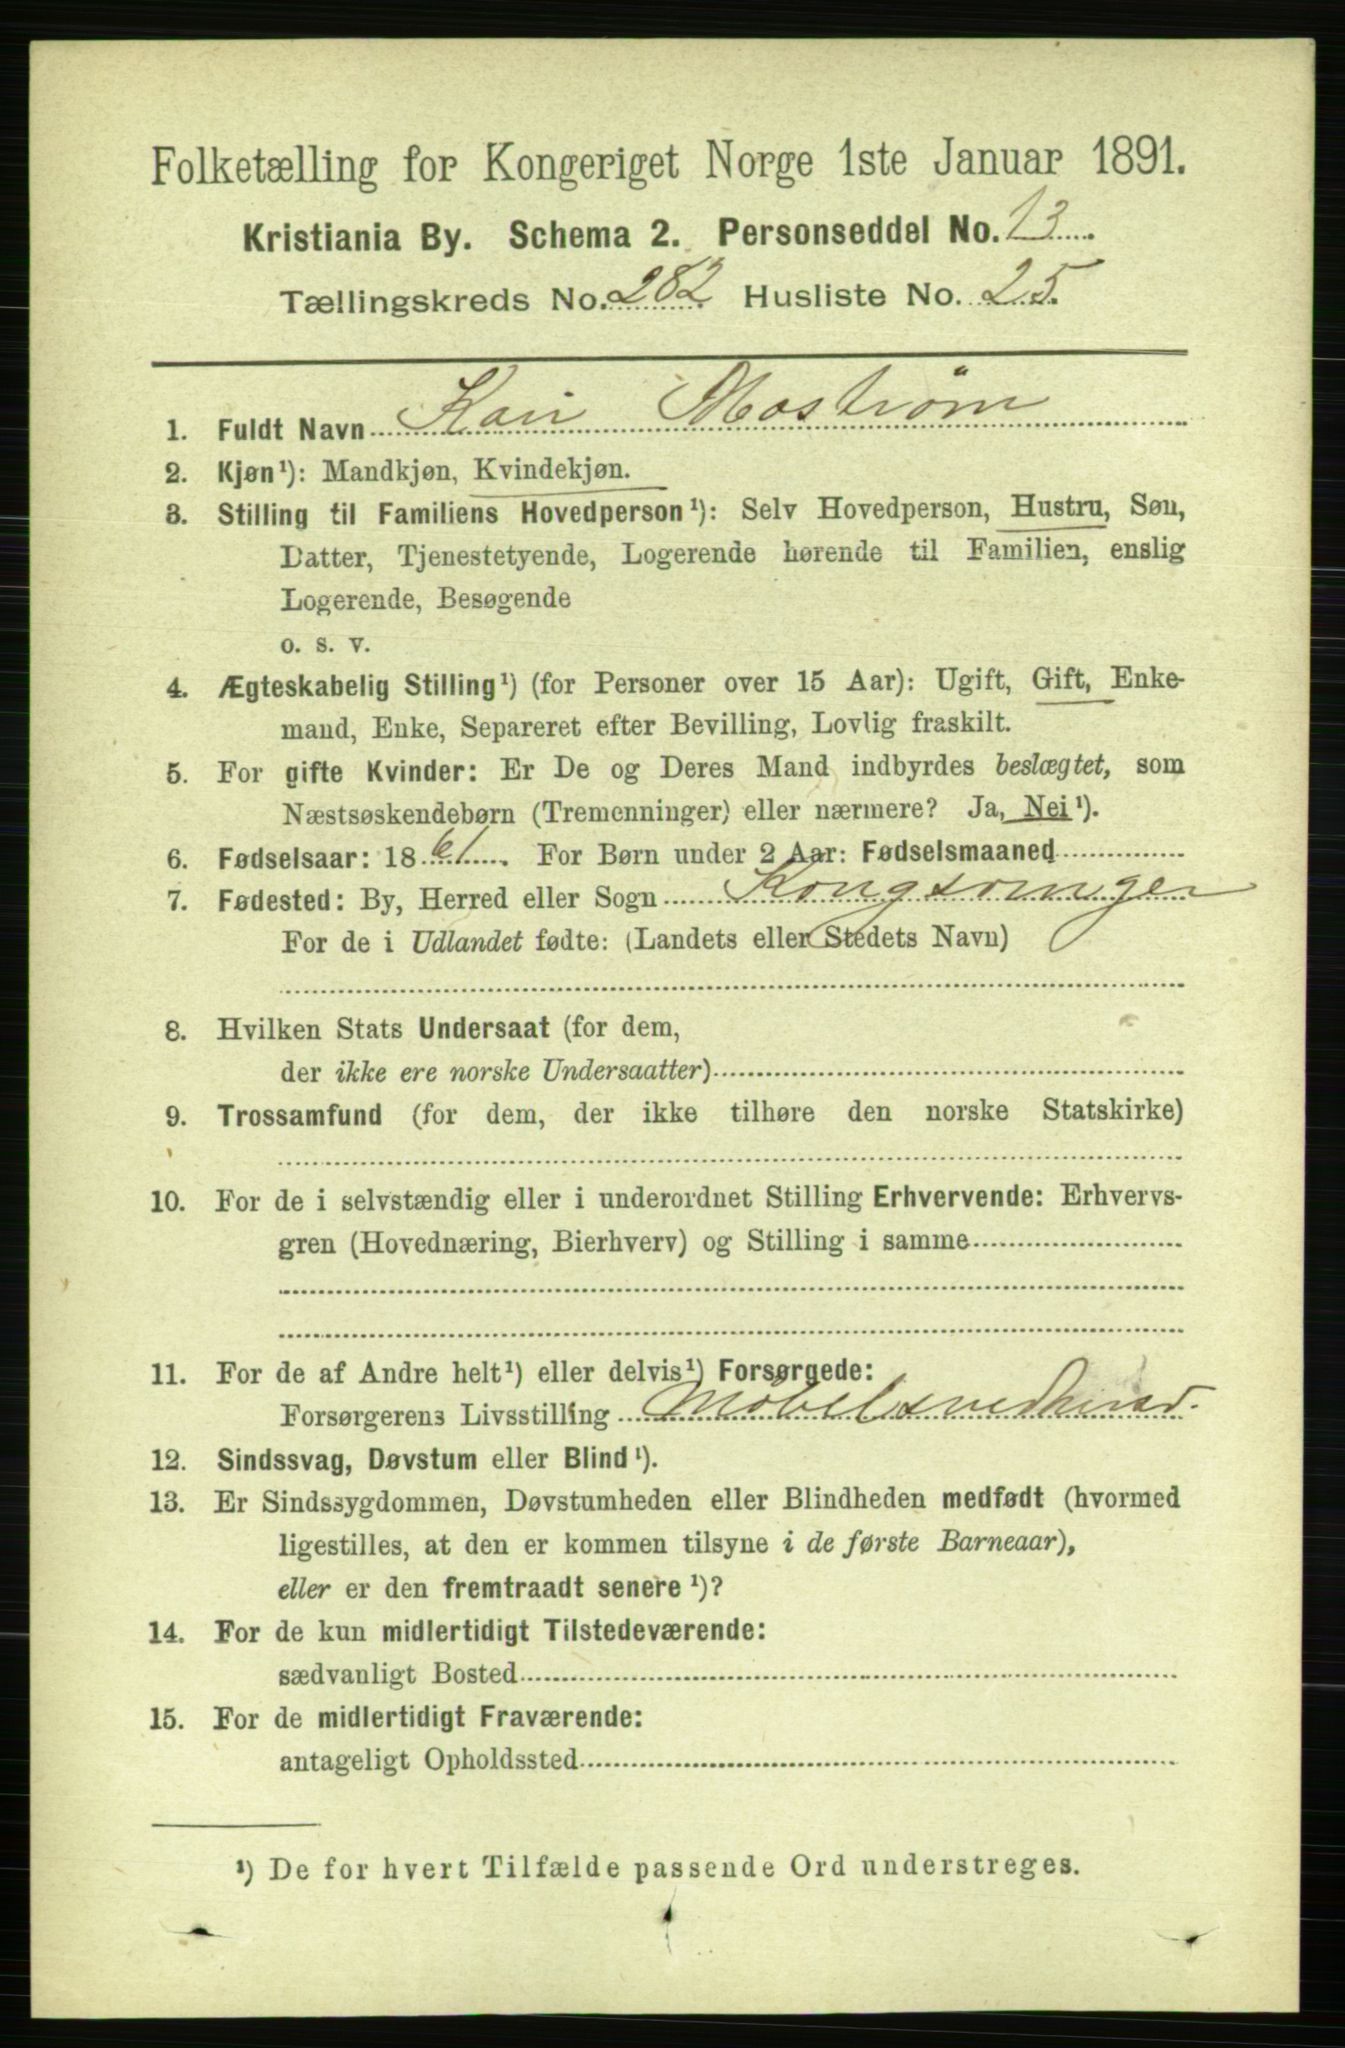 Folketælling for Kongeriget Norge 1ste Januar 1891.
Kristiania By. Schema 2. Personseddel No. 13
Tællingskreds No. 282 Husliste No. 25.
1. Fuldt Navn Kari Moström
2. Kjøn¹): Mandkjøn, Kvindekjøn.
3. Stilling til Familiens Hovedperson¹): Selv Hovedperson, Hustru, Søn,
Datter, Tjenestetyende, Logerende hørende til Familien, enslig
Logerende, Besøgende
o. s. v.
4. Ægteskabelig Stilling¹) (for Personer over 15 Aar): Ugift, Gift, Enke-
mand, Enke, Separeret efter Bevilling, Lovlig fraskilt.
5. For gifte Kvinder: Er De og Deres Mand indbyrdes beslægtet, som
Næstsøskendebørn (Tremenninger) eller nærmere? Ja, Nei¹).
6. Fødselsaar: 1861. For Børn under 2 Aar: Fødselsmaaned
7. Fødested: By, Herred eller Sogn Kongsvinger
For de i Udlandet fødte: (Landets eller Stedets Navn)
8. Hvilken Stats Undersaat (for dem,
der ikke ere norske Undersaatter)
9. Trossamfund (for dem, der ikke tilhøre den norske Statskirke)
10. For de i selvstændig eller i underordnet Stilling Erhvervende: Erhvervs-
gren (Hovednæring, Bierhverv) og Stilling i samme
11. For de af Andre helt¹) eller delvis¹) Forsørgede:
Forsørgerens Livsstilling Möbelsnedkersv.
12. Sindssvag, Døvstum eller Blind¹).
13. Er Sindssygdommen, Døvstumheden eller Blindheden medfødt (hvormed
ligestilles, at den er kommen tilsyne i de første Barneaar),
eller er den fremtraadt senere¹)?
14. For de kun midlertidigt Tilstedeværende:
sædvanligt Bosted
15. For de midlertidigt Fraværende:
antageligt Opholdssted
¹) De for hvert Tilfælde passende Ord understreges.